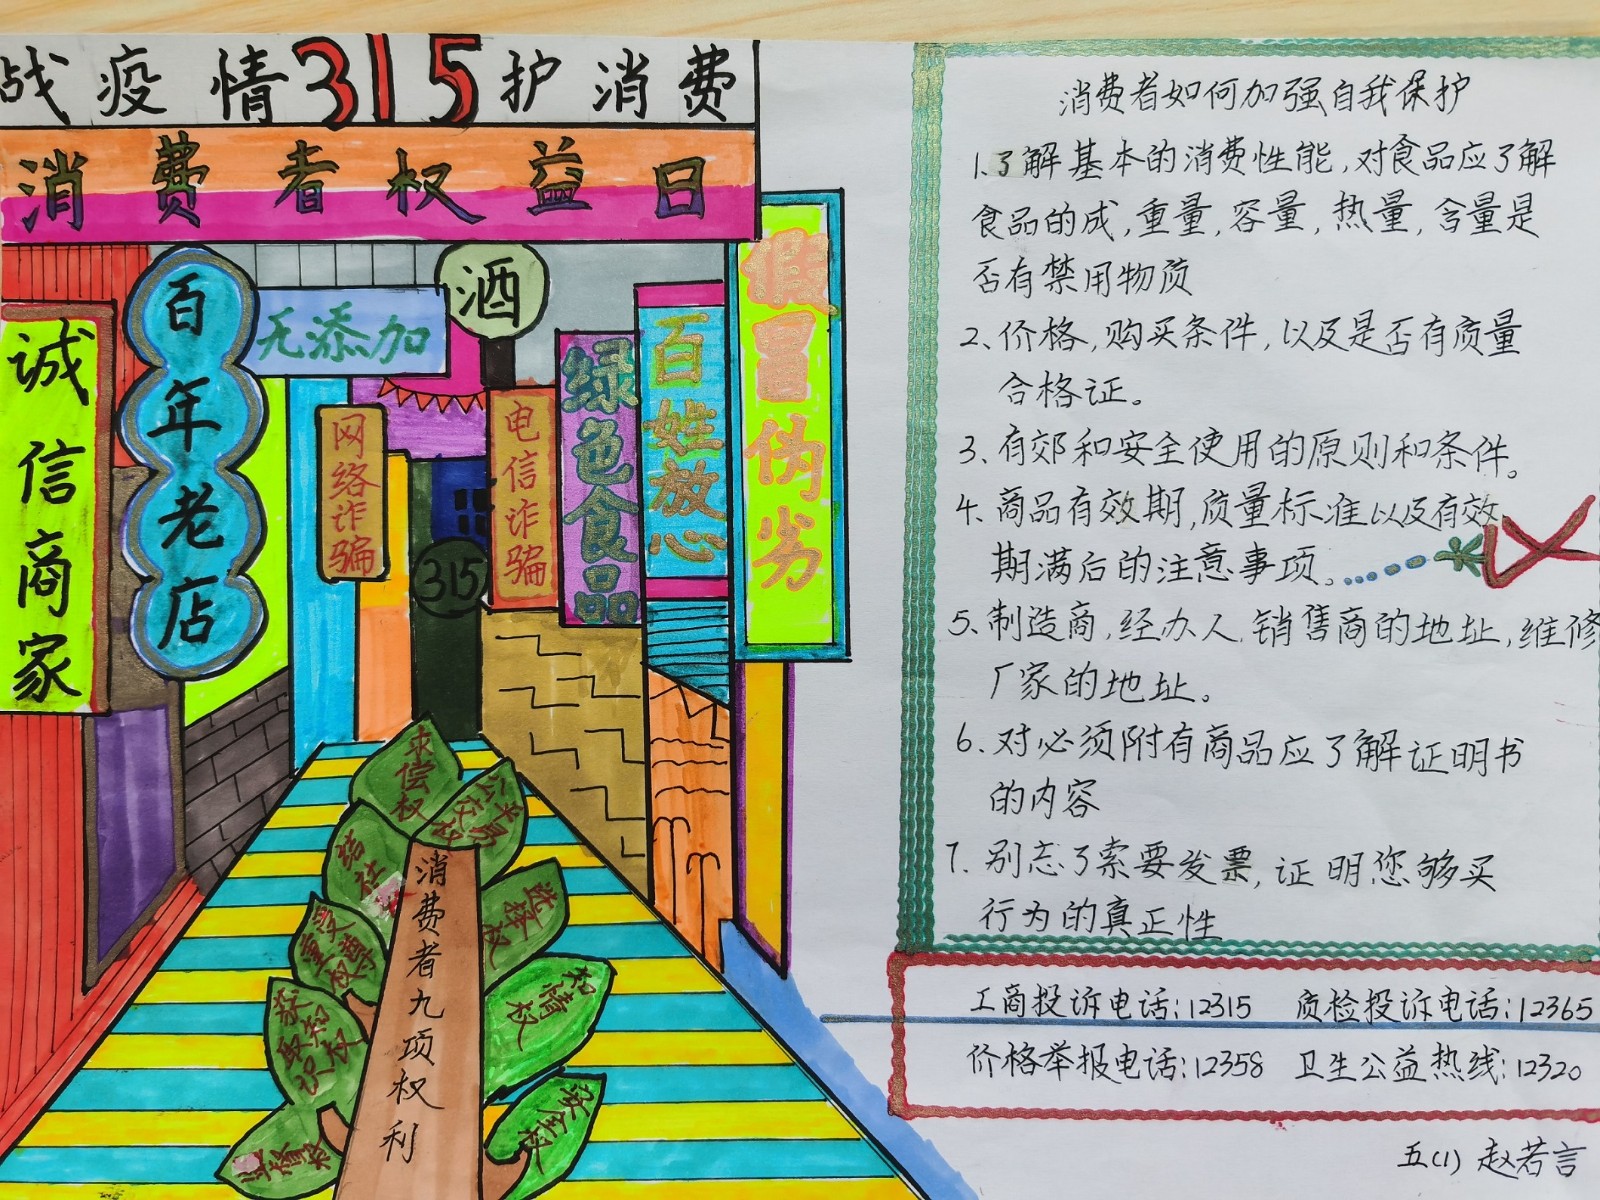 战疫情315护消费
消费者权益日
诚信商家
百年老店
无添加
酒
网络诈骗
315
电信诈骗
绿色食品
百姓放心
假冒伪劣
求偿权
公平交易权
结社
选择权
受尊重权
知情权
获取知识权
安全权
监督权
消费者九项权利
消费者如何加强自我保护
1.了解基本的消费性能,对食品应了解
食品的成,重量,容量,热量,含量是
否有禁用物质
2、价格,购买条件,以及是否有质量
合格证。
3、有郊和安全使用的原则和条件。
4、商品有效期,质量标准以及有效
期满后的注意事项。
5、制造商,经办人,销售商的地址,维修
厂家的地址。
6、对必须附有商品应了解证明书
的内容
7、别忘了索要发票,证明您够买
行为的真正性
工商投诉电话:12315 质检投诉电话:12365
价格举报电话:12358 卫生公益热线:12320
五(1) 赵若言